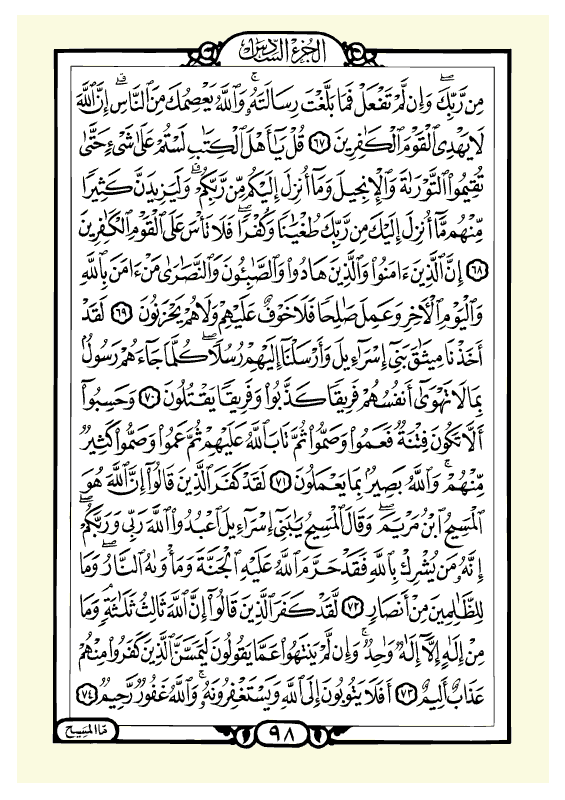 الجزء السادس
مِن رَّبِّكَ ۖ وَإِن لَّمْ تَفْعَلْ فَمَا بَلَّغْتَ رِسَالَتَهُۥ ۚ وَٱللَّهُ يَعْصِمُكَ مِنَ ٱلنَّاسِ ۗ إِنَّ ٱللَّهَ
لَا يَهْدِى ٱلْقَوْمَ ٱلْكَافِرِينَ ٦٧ قُلْ يَا أَهْلَ ٱلْكِتَٰبِ لَسْتُمْ عَلَىٰ شَىْءٍ حَتَّىٰ
تُقِيمُوا ٱلتَّوْرَىٰةَ وَٱلْإِنجِيلَ وَمَا أُنزِلَ إِلَيْكُم مِّن رَّبِّكُمْ ۗ وَلَيَزِيدَنَّ كَثِيرًا
مِّنْهُم مَّا أُنزِلَ إِلَيْكَ مِن رَّبِّكَ طُغْيَٰنًا وَكُفْرًا ۖ فَلَا تَأْسَ عَلَى ٱلْقَوْمِ ٱلْكَٰفِرِينَ
٦٨ إِنَّ ٱلَّذِينَ ءَامَنُوا وَٱلَّذِينَ هَادُوا وَٱلصَّٰبِـُٔونَ وَٱلنَّصَٰرَىٰ مَنْ ءَامَنَ بِٱللَّهِ
وَٱلْيَوْمِ ٱلْءَاخِرِ وَعَمِلَ صَٰلِحًا فَلَا خَوْفٌ عَلَيْهِمْ وَلَا هُمْ يَحْزَنُونَ ٦٩ لَقَدْ
أَخَذْنَا مِيثَٰقَ بَنِى إِسْرَٰٓءِيلَ وَأَرْسَلْنَا إِلَيْهِمْ رُسُلًا ۖ كُلَّمَا جَاءَهُمْ رَسُولٌ
بِمَا لَا تَهْوَىٰ أَنفُسُهُمْ فَرِيقًا كَذَّبُوا وَفَرِيقًا يَقْتُلُونَ ٧٠ وَحَسِبُوا
أَلَّا تَكُونَ فِتْنَةٌ فَعَمُوا وَصَمُّوا ثُمَّ تَابَ ٱللَّهُ عَلَيْهِمْ ثُمَّ عَمُوا وَصَمُّوا كَثِيرٌ
مِّنْهُمْ ۚ وَٱللَّهُ بَصِيرٌۢ بِمَا يَعْمَلُونَ ٧١ لَقَدْ كَفَرَ ٱلَّذِينَ قَالُوا إِنَّ ٱللَّهَ هُوَ
ٱلْمَسِيحُ ٱبْنُ مَرْيَمَ ۖ وَقَالَ ٱلْمَسِيحُ يَٰبَنِى إِسْرَٰٓءِيلَ ٱعْبُدُوا ٱللَّهَ رَبِّى وَرَبَّكُمْ ۖ
إِنَّهُۥ مَن يُشْرِكْ بِٱللَّهِ فَقَدْ حَرَّمَ ٱللَّهُ عَلَيْهِ ٱلْجَنَّةَ وَمَأْوَىٰهُ ٱلنَّارُ ۖ وَمَا
لِلظَّٰلِمِينَ مِنْ أَنصَارٍ ٧٢ لَّقَدْ كَفَرَ ٱلَّذِينَ قَالُوا إِنَّ ٱللَّهَ ثَالِثُ ثَلَٰثَةٍ ۘ وَمَا
مِنْ إِلَٰهٍ إِلَّا إِلَٰهٌ وَٰحِدٌ ۚ وَإِن لَّمْ يَنتَهُوا عَمَّا يَقُولُونَ لَيَمَسَّنَّ ٱلَّذِينَ كَفَرُوا مِنْهُمْ
عَذَابٌ أَلِيمٌ ٧٣ أَفَلَا يَتُوبُونَ إِلَى ٱللَّهِ وَيَسْتَغْفِرُونَهُۥ ۚ وَٱللَّهُ غَفُورٌ رَّحِيمٌ ٧٤
٩٨
مَا الْمَسِيحُ